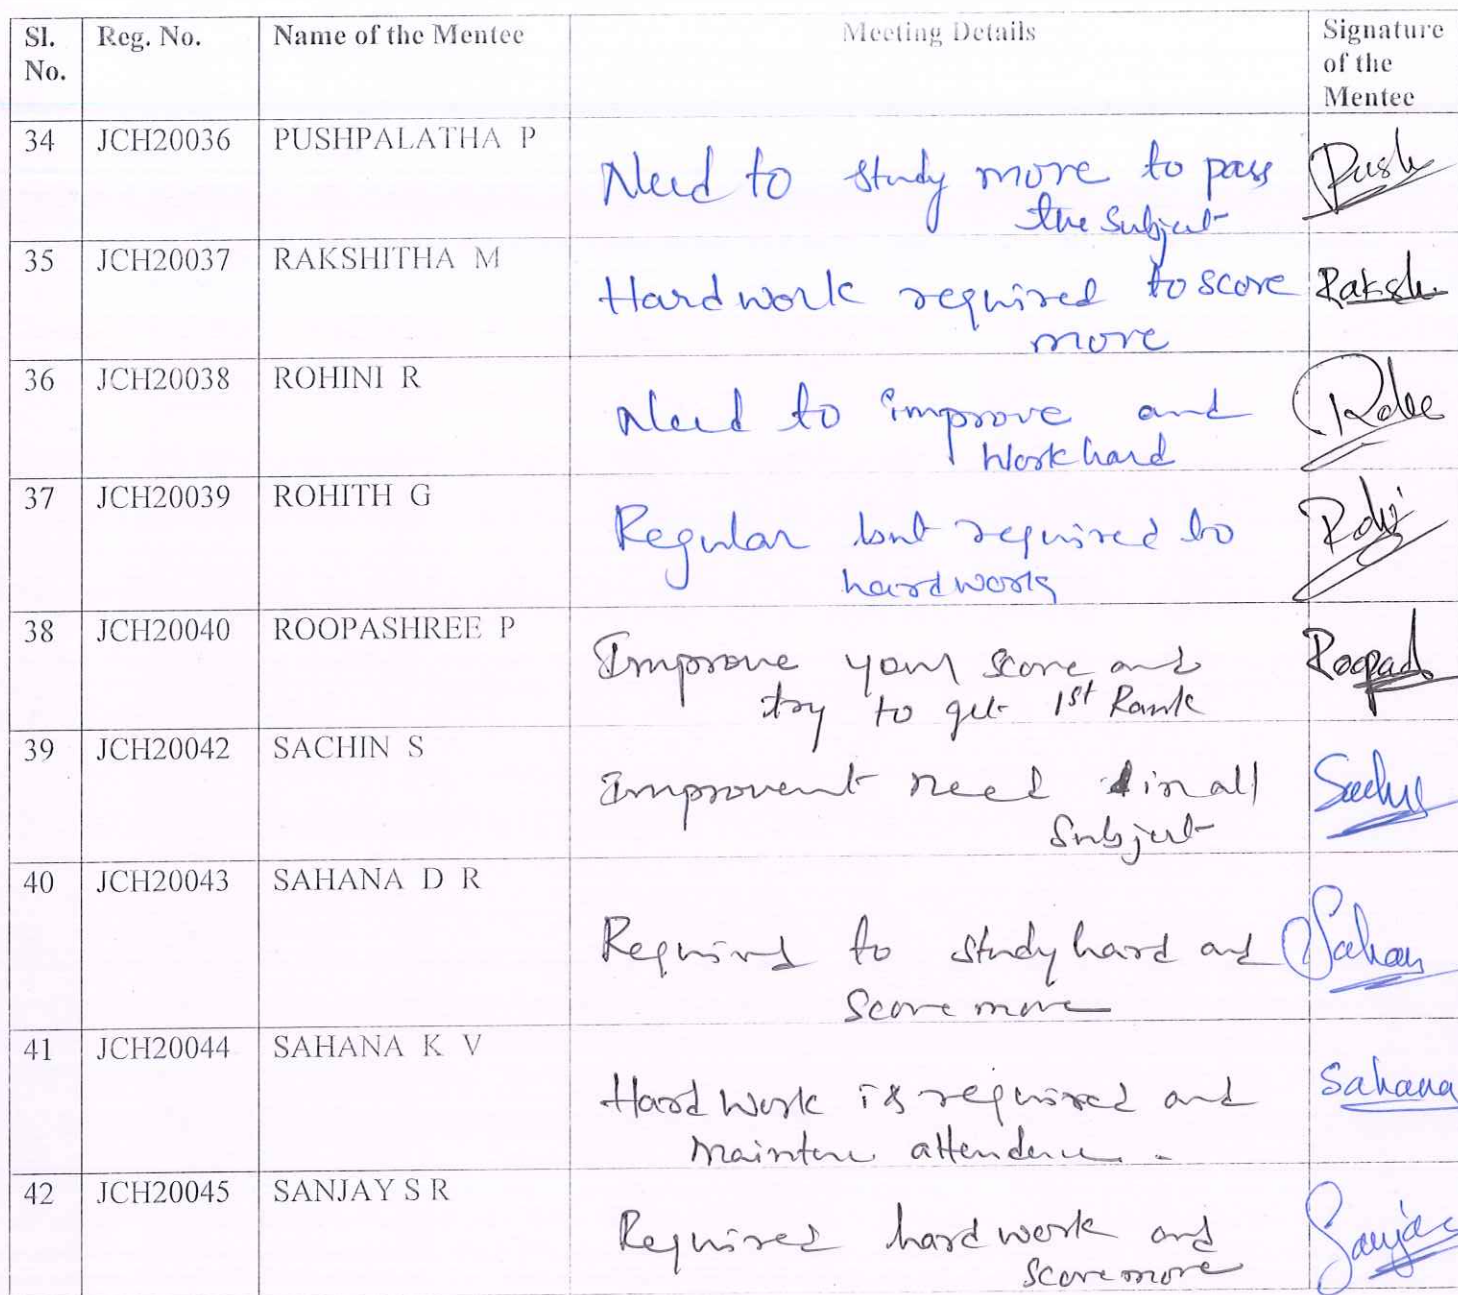 Sl. No. Reg. No. Name of the Mentee Meeting Details Signature of the Mentee
34 JCH20036 PUSHPALATHA P Need to study more to pass
the Subject
Push
35 JCH20037 RAKSHITHA M Hard work required to score
more
Raksh
36 JCH20038 ROHINI R Need to improve and
Work hard
37 JCH20039 ROHITH G Regular but required to
hardwork
38 JCH20040 ROOPASHREE P Improve your score and
try to get 1st Rank
39 JCH20042 SACHIN S Improvent need in all
Subject
40 JCH20043 SAHANA D R Required to study hard and
Score more
41 JCH20044 SAHANA K V Hard work is required and
Maintene attendence.
Sahana
42 JCH20045 SANJAY S R Required hard work and
Score more